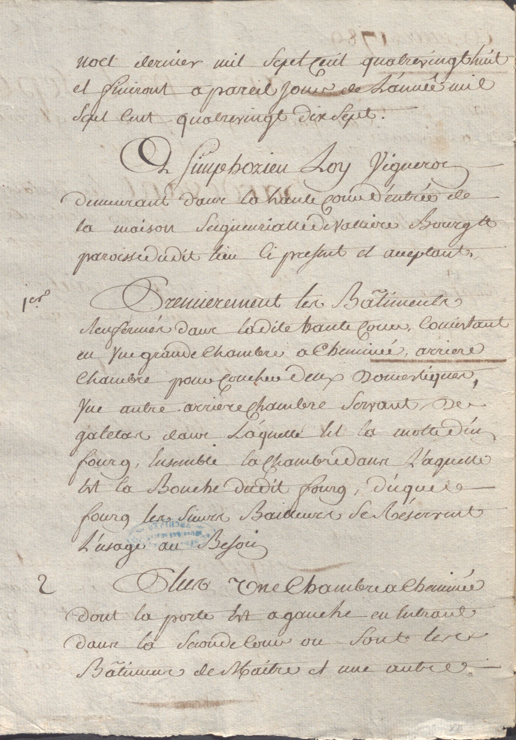 noel dernier mil Sept Cent quatrevingt huit
et finiront a pareil Jour de L'année mil
Sept Cent quatrevingt dix Sept.
A Simphorien Loy Vigneron
demeurant dans la haute Cour d'entrée de
la maison Seigneurialle de Valliere Bourg et
paroisse dudit lieu Ci present et acceptant.
1ero
Premierement les Bâtiments
Renfermés dans ladite haute Cour, Consistant
en Une grande Chambre a Cheminée, arriere
Chambre pour Coucher deux Domestiques,
Une autre arriere Chambre Servant De
galetas dans Laquelle Est la motte d'un
fourg, Ensemble la Chambre dans L'aquelle
Est la Bouche dudit fourg, duquel
fourg les Sieurs Bailleurs Se Réservent
L'usage au Besoin
2 Plus Une Chambre a Cheminée
dont la porte Est a gauche en Entrant
dans la Seconde Cour ou Sont les
Bâtiments de Maitre et une autre